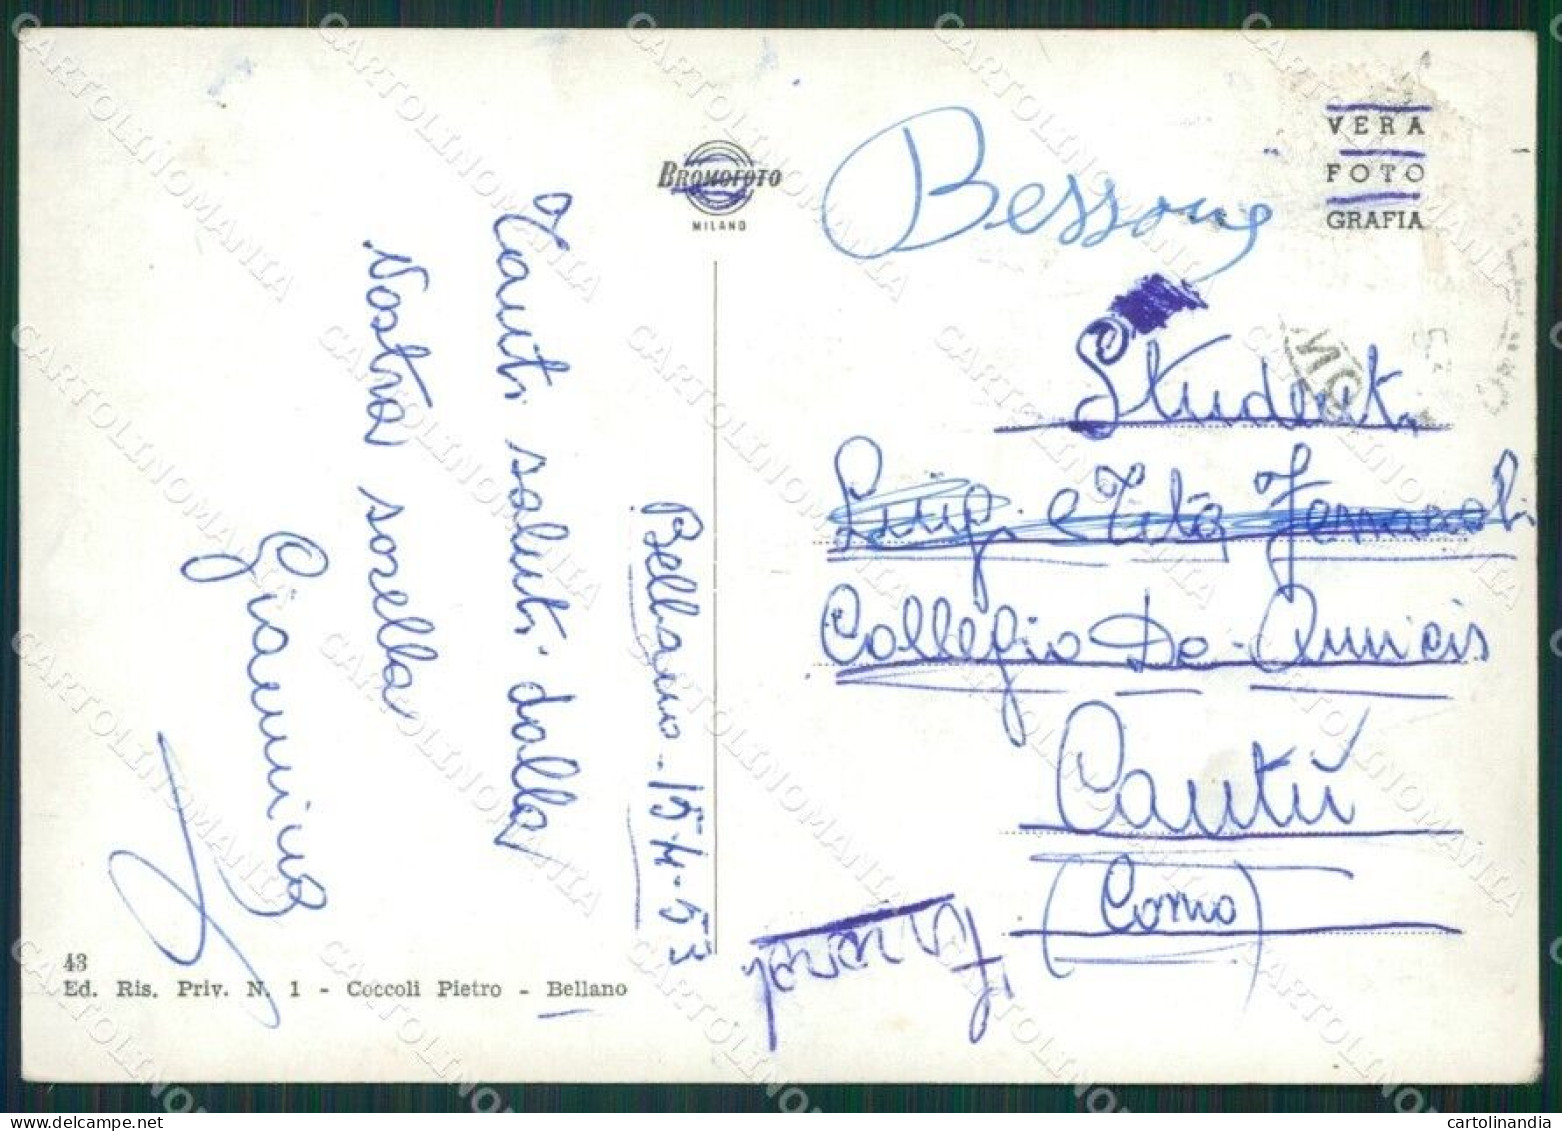 BROMOFOTO
MILANO
VERA
FOTO
GRAFIA
Bessone
Bellano - 15-4-53
Tanti saluti dalla
Vostra sorella
Giannina
Student.
Luigi e Tita
Collegio De-Amicis
Cantù
(Como)
43
Ed. Ris. Priv. N. 1 - Coccoli Pietro - Bellano
CARTOLINOMANIA
cartolinandia